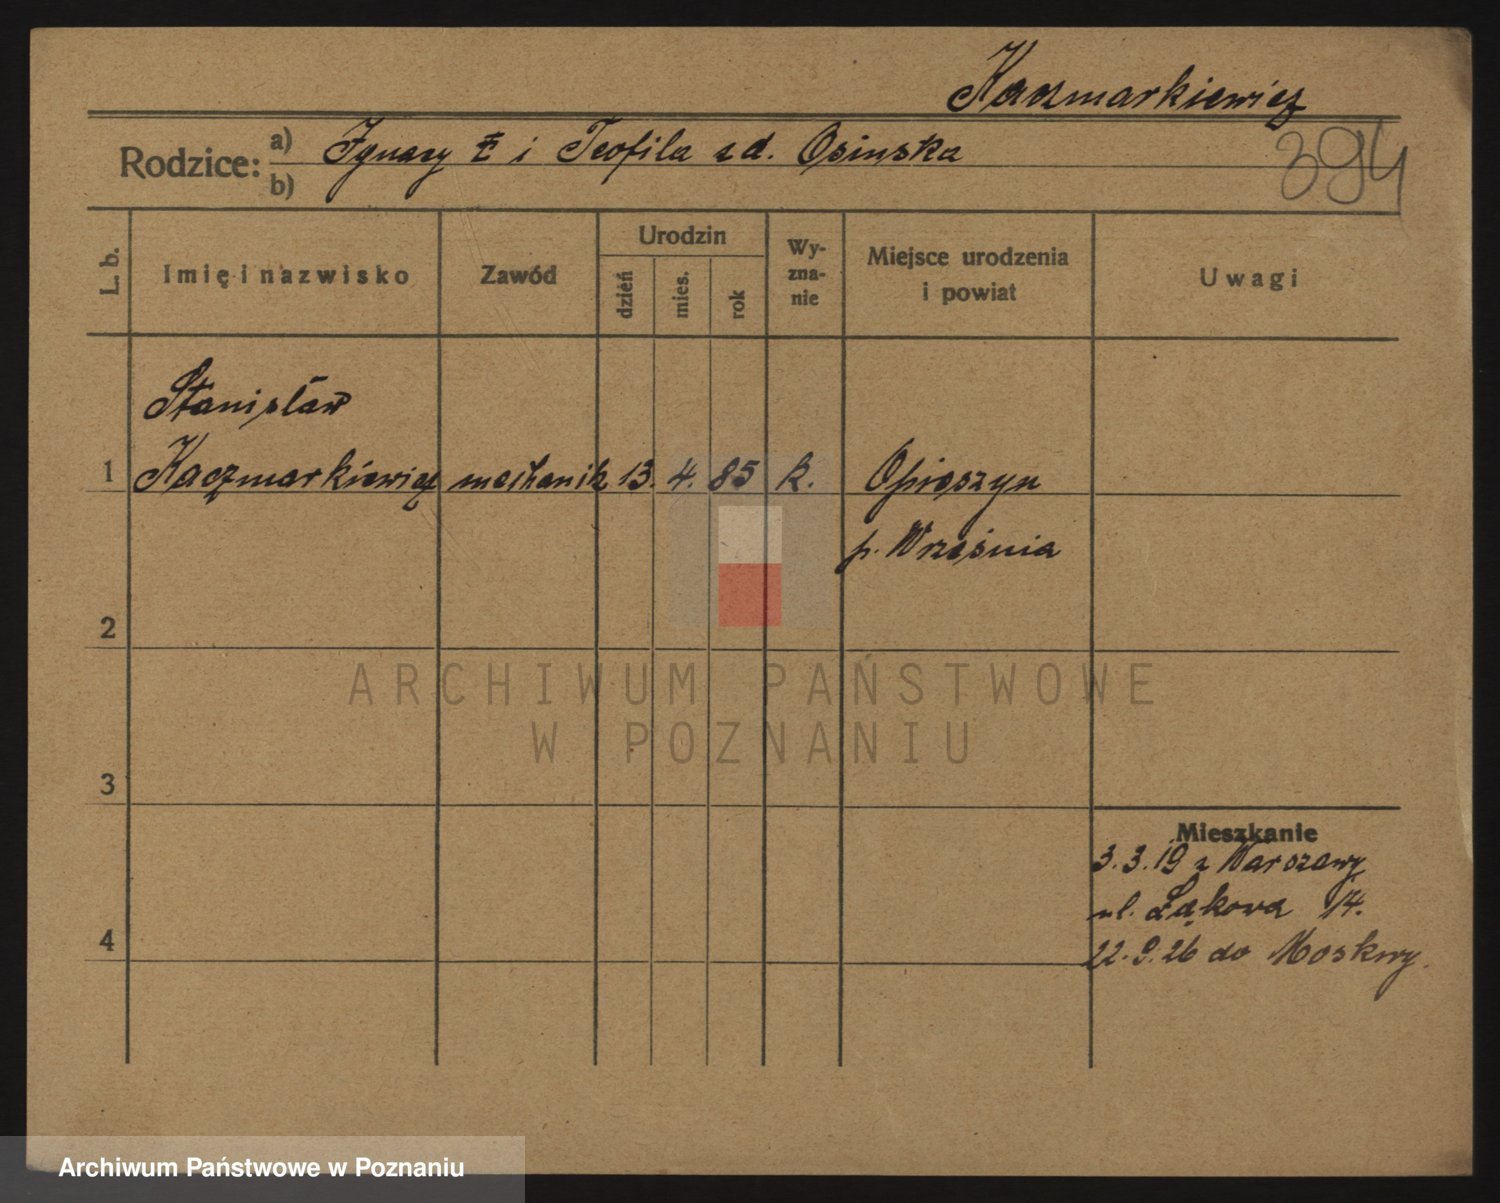 Kaczmarkiewicz
394
Rodzice: a) Ignacy i Teofila zd. Osinska
b)
L. b. Imię i nazwisko Zawód Urodzin dzień mies. rok Wyzna-nie Miejsce urodzenia i powiat Uwagi
Stanisław
1 Kaczmarkiewicz mechanik 13. 4. 85 k. Opieszyn
p. Września
2
3
Mieszkanie
3.3.19 z Warszawy
ul. Łąkowa 14.
4
22.9.26 do Moskwy.
ARCHIWUM PAŃSTWOWE
W POZNANIU
Archiwum Państwowe w Poznaniu